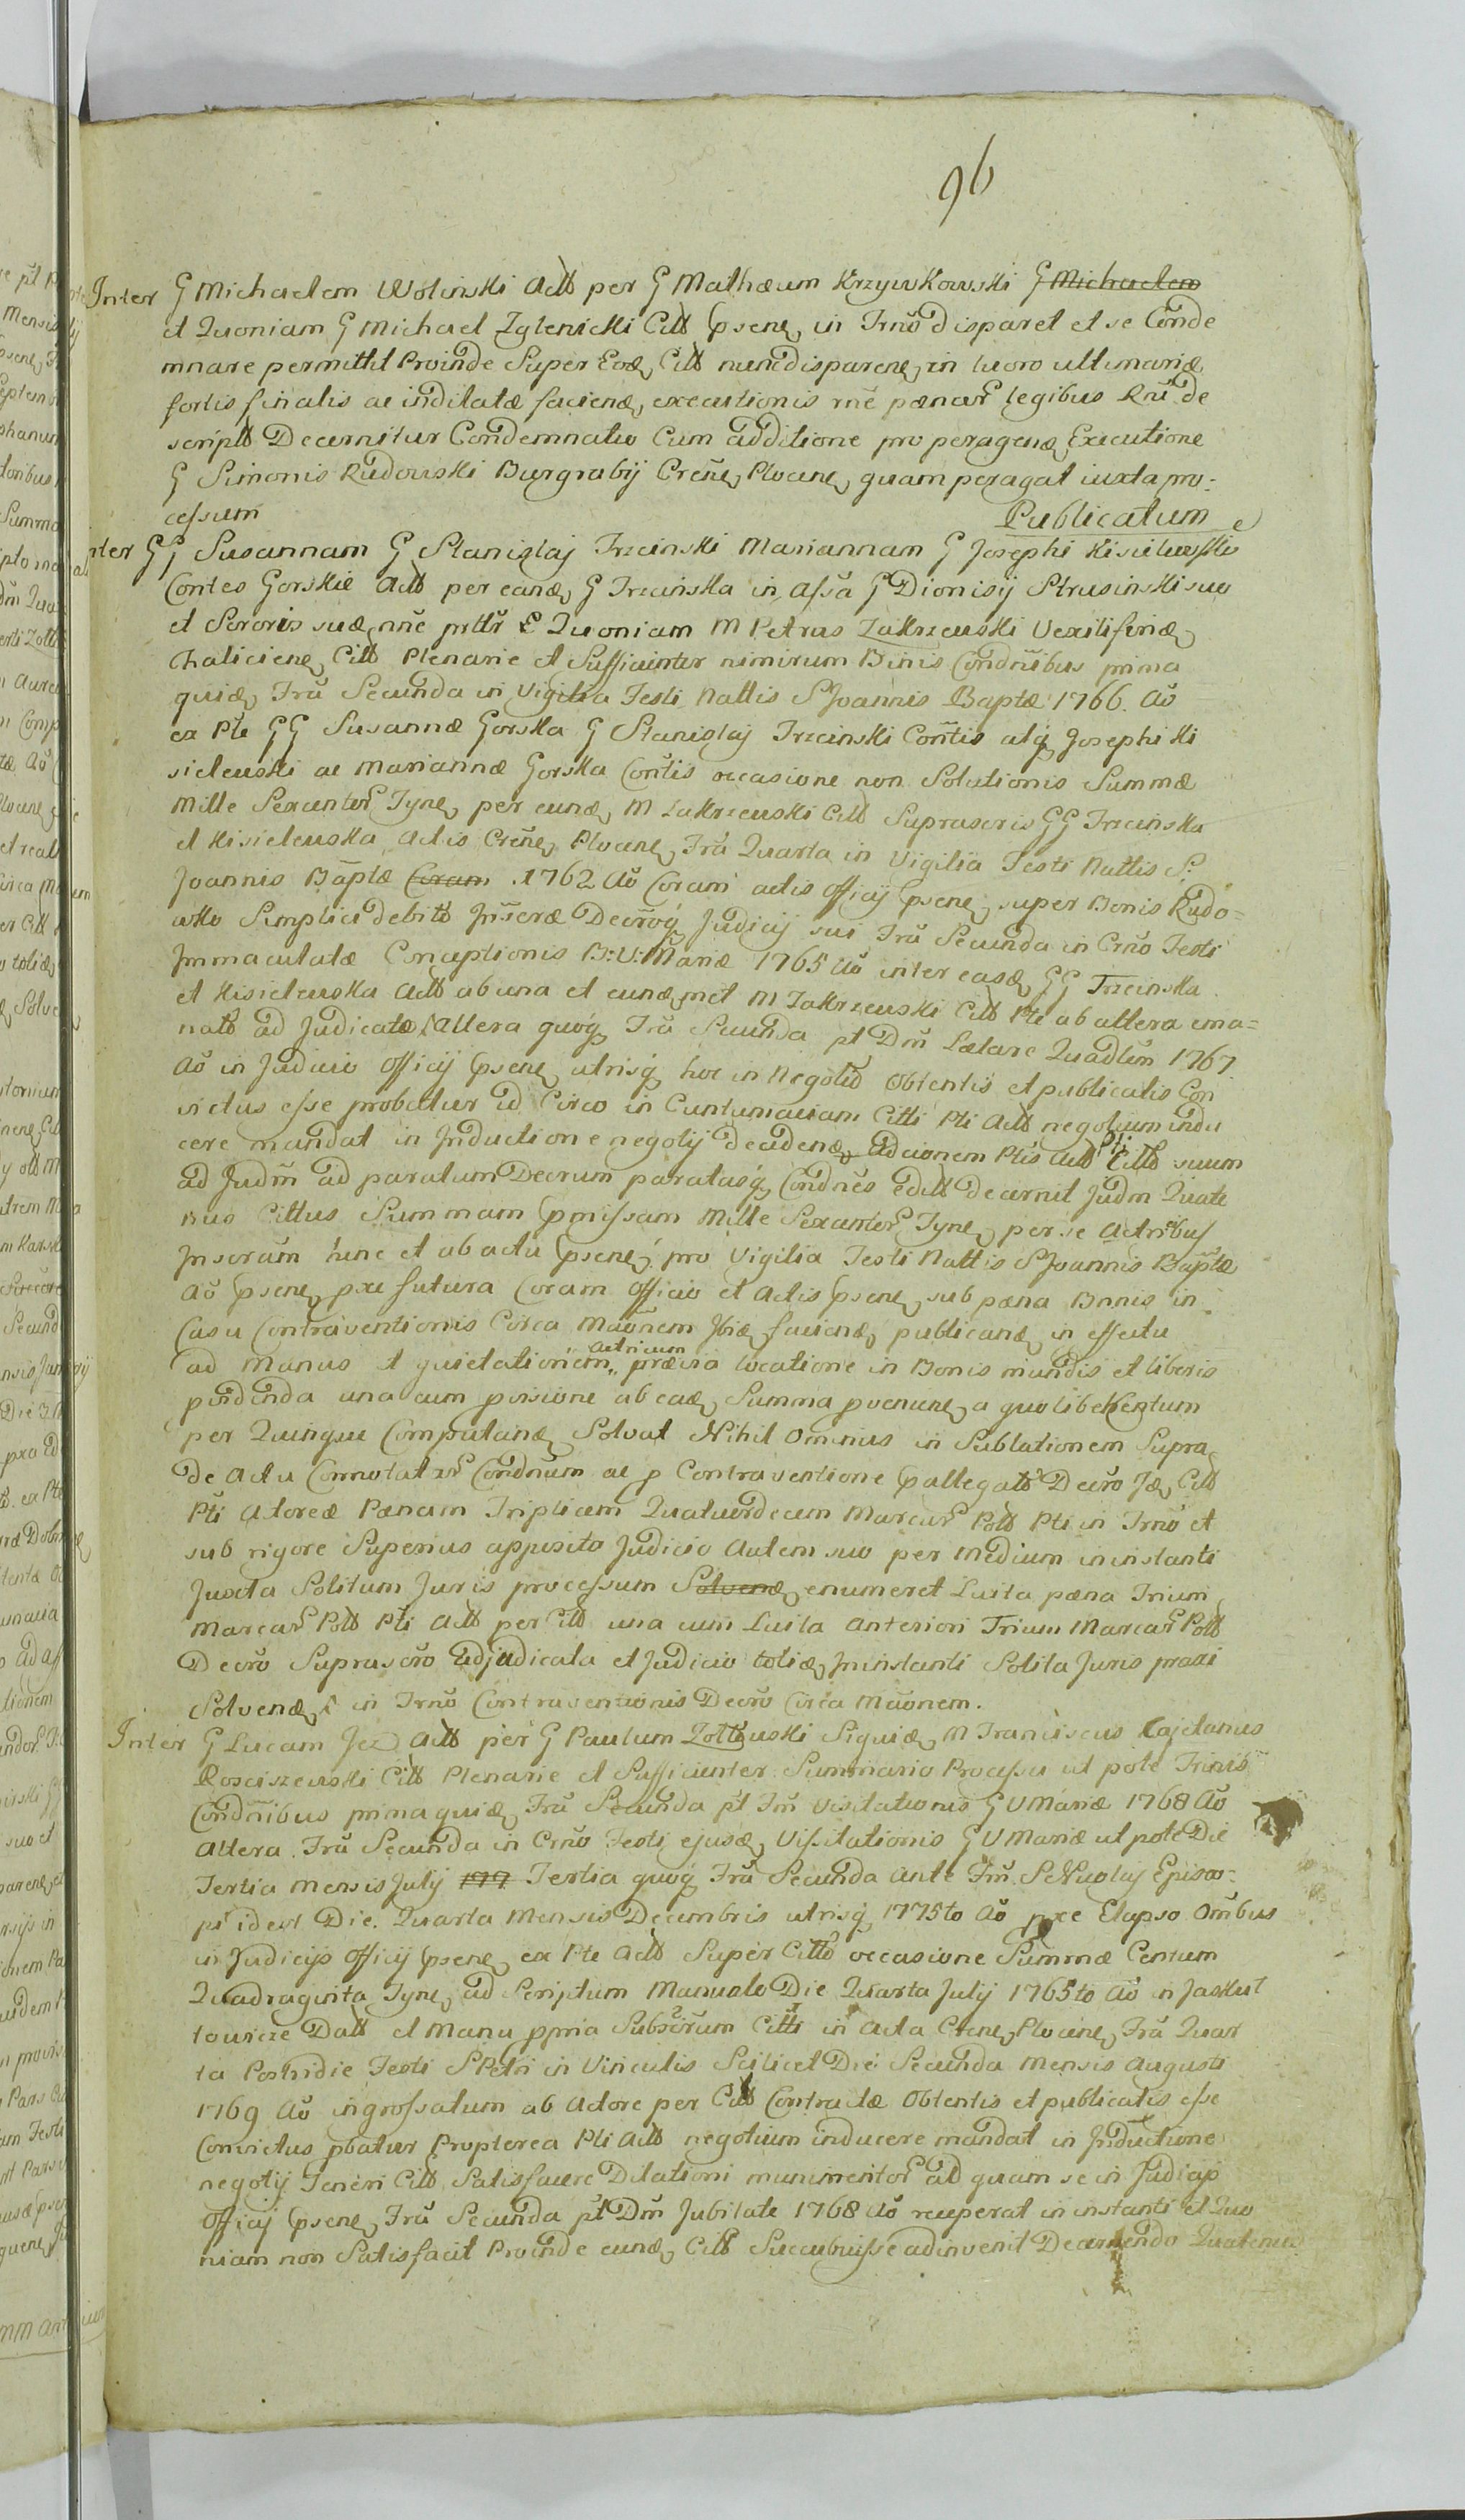 96
Inter G Michaelem Wolinski Actt per G Mathæum Krzywkowski G Michaelem
et Quoniam G Michael Zglenicki Citt psene in Trno disparet et se Conde
mnare permittit Proinde Super Eode Citt nunc disparene in lucro ultimariæ
sortis finalis ac indilatæ faciende executionis rne pænar legibus Rni de
script Decernitur Condemnatio Cum additione pro peragenda Executione
G Simonis Rudowski Burgrabij Crene Plocene quam peragat iuxta pro:
cessum Publicatum
nter GG Susannam G Stanislaj Trzcinski Mariannam G Josephi Kisielewski
Contes Gorskie Actt per eande G Trzcinska in Assa G Dionisij Strusinski suo
et Sororis suæ nne prttr E Quoniam M Petrus Zakrzewski Vexiliferide
Chaliciene Citt Plenarie et Sufficienter nimirum Binis Condnibus prima
quide Fra Secunda in Vigilia Festi Nattis S Joannis Baptæ 1766. Ao
ex Pte GG Susannæ Gorska G Stanislaj Trzcinski Contis atq Josephi Ki
sielewski ac Mariannæ Gorska Contis occasione non Solutionis Summæ
Mille Sexcentor Tyne per eunde M Zakrzewski Citt Suprascris GG Trzcinska
et Kisielewska Actis Crene Plocene Fra Quarta in Vigilia Festi Nattis S.
Joannis Baptæ Coram .1762 Ao Coram actis Officij psene super Bonis Rudo=
wko Simplici debito Inscræ Decroq Judicij sui Fra Secunda in Crno Festi
Immaculatæ Conceptionis B:V: Mariæ 1765 Ao inter easde GG Trzcinska
et Kisielewska Actt ab una et eunde met M Zakrzewski Citt Pte ab altera ema=
nato ad Judicatæ Altera quoq Fra Secunda pt Dm Lætare Quadlm 1767
Ao in Judicio Officij psene utrisq hoc in Negotio Obtentis et publicatis Con
victus esse probatur id Circo in Cuntumaciam Citti Pti Actt negotium indu
cere mandat in Inductione negotij decidende Adcionem Ptis Actt Pti Citto suum
ad Judm ad paratum Decrum paratasq Condnes edit Decernit Judm Quate
nus Cittus Summam pmissam Mille Sexcentor Tyne per se Actribus
Inscram hinc et ab actu psene pro Vigilia Festi Nattis S Joannis Baptæ
Ao psene pxe futura Coram Officio et Actis psene sub pæna Bnnis in
Casu Contraventionis Circa Maonem Ibide faciende publicande in effectu
ad Manus et quietationem actricum præria locatione in Bonis mundis et liberis
pondinda una cum provisione ab eade Summa provenine a quolibet Centum
per Quinque Computande Solvat Nihil Ominus in Sublationem Supra
de Actu Connotatar Condnum ac p Contraventione pallegato Decro Jde Citt
Pti Actoreæ Pænam Triplicem Quatuordecem Marcar Poltt Pti in Trno et
sub rigore Superius apposito Judicio Autem suo per Medium in instanti
Juxta Solitum Juris processum Solvende enumeret Luita pæna Trium
Marcar Poltt Pti Actt per Citt una cum Luita Anteriori Trium Marcar Poltt
Decro Suprascro Adjudicata et Judicio totide Ininstanti Solita Juris praxi
Solvende in Trno Contraventionis Decro Circa Maonem.
Inter G Lucam Jez Actt per G Paulum Zottowski Siquide M Franciscus Cajetanus
Rosciszewski Citt Plenarie et Sufficienter Summario Processu ut pote Trinis
Condnibus prima quide Fra Secunda pt Fm Visitationis G V Mariæ 1768 Ao
Altera Fra Secunda in Crno Festi ejusde Vissitationis G V Mariæ ut pote Die
Tertia Mensis Julij 177 Tertia quoq Fra Secunda Ante Fm S Nicolaj Episco=
pi idest Die. Quarta Mensis Decembris utrisq 1775to Ao pxe Elapso Omnibus
in Judicijs Officij psene ex Pte Actt Super Citto occasione Summæ Centum
Quadraginta Tyne ad Scriptum Manuale Die Quarta Julij 1765to Ao in Jaskul
towicze Datt et Manu ppria Subscrum Citti in Acta Crene Plocene Fra Quar
ta Postridie Festi S Petri in Vinculis Scilicet Die Secunda Mensis Augusti
1769 Ao ingrossatum ab Actore per Citt Contractæ Obtentis et publicatis esse
Convictus pbatur Propterea Pti Actt negotium inducere mandat in Inductione
negotij Teneri Citt Satisfacere Dilationi munimentor ad quam se in Judicijs
Officij psene Fra Secunda pt Dm Jubilate 1768 Ao receperat in instanti et Quo
niam non Satisfacit Proinde eunde Citt Succubuisse adinvenit Decernendo Quatenus